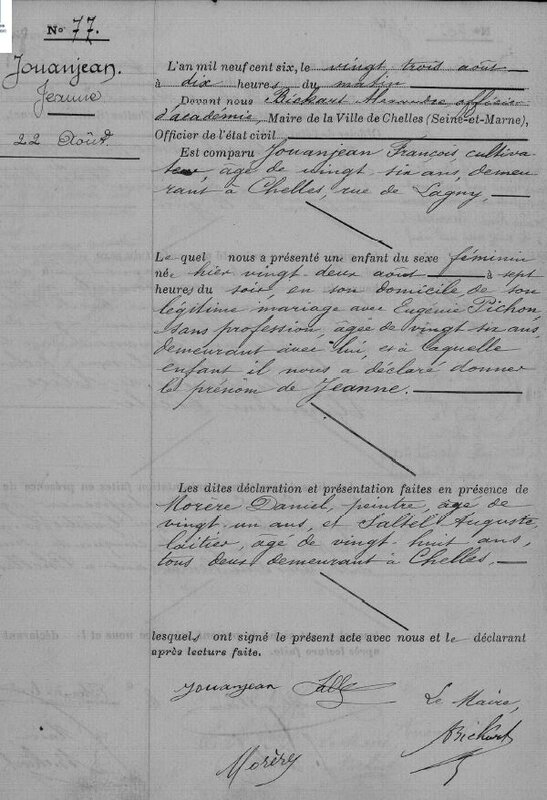 No 77.
Jouanjean.
Jeanne
22 Août.
L'an mil neuf cent six, le vingt trois août
à dix heures du matin
Devant nous Bickart Alexandre officier
d'académie, Maire de la Ville de Chelles (Seine-et-Marne),
Officier de l'état civil
Est comparu Jouanjean François, cultiva
teur, âgé de vingt six ans, demeu
rant à Chelles, rue de Lagny,
Le quel nous a présenté une enfant du sexe féminin
née hier vingt deux août à sept
heures du soir, en son domicile de son
légitime mariage avec Eugénie Pichon,
sans profession, âgée de vingt six ans,
demeurant avec lui, et à laquelle
enfant il nous a déclaré donner
le prénom de Jeanne.
Les dites déclaration et présentation faites en présence de
Morère Daniel, peintre, âgé de
vingt un ans, et Saltel Auguste
laitier, âgé de vingt huit ans,
tous deux demeurant à Chelles,
lesquels ont signé le présent acte avec nous et le déclarant
après lecture faite.
Jouanjean
Le Maire,
ABickart
Morère